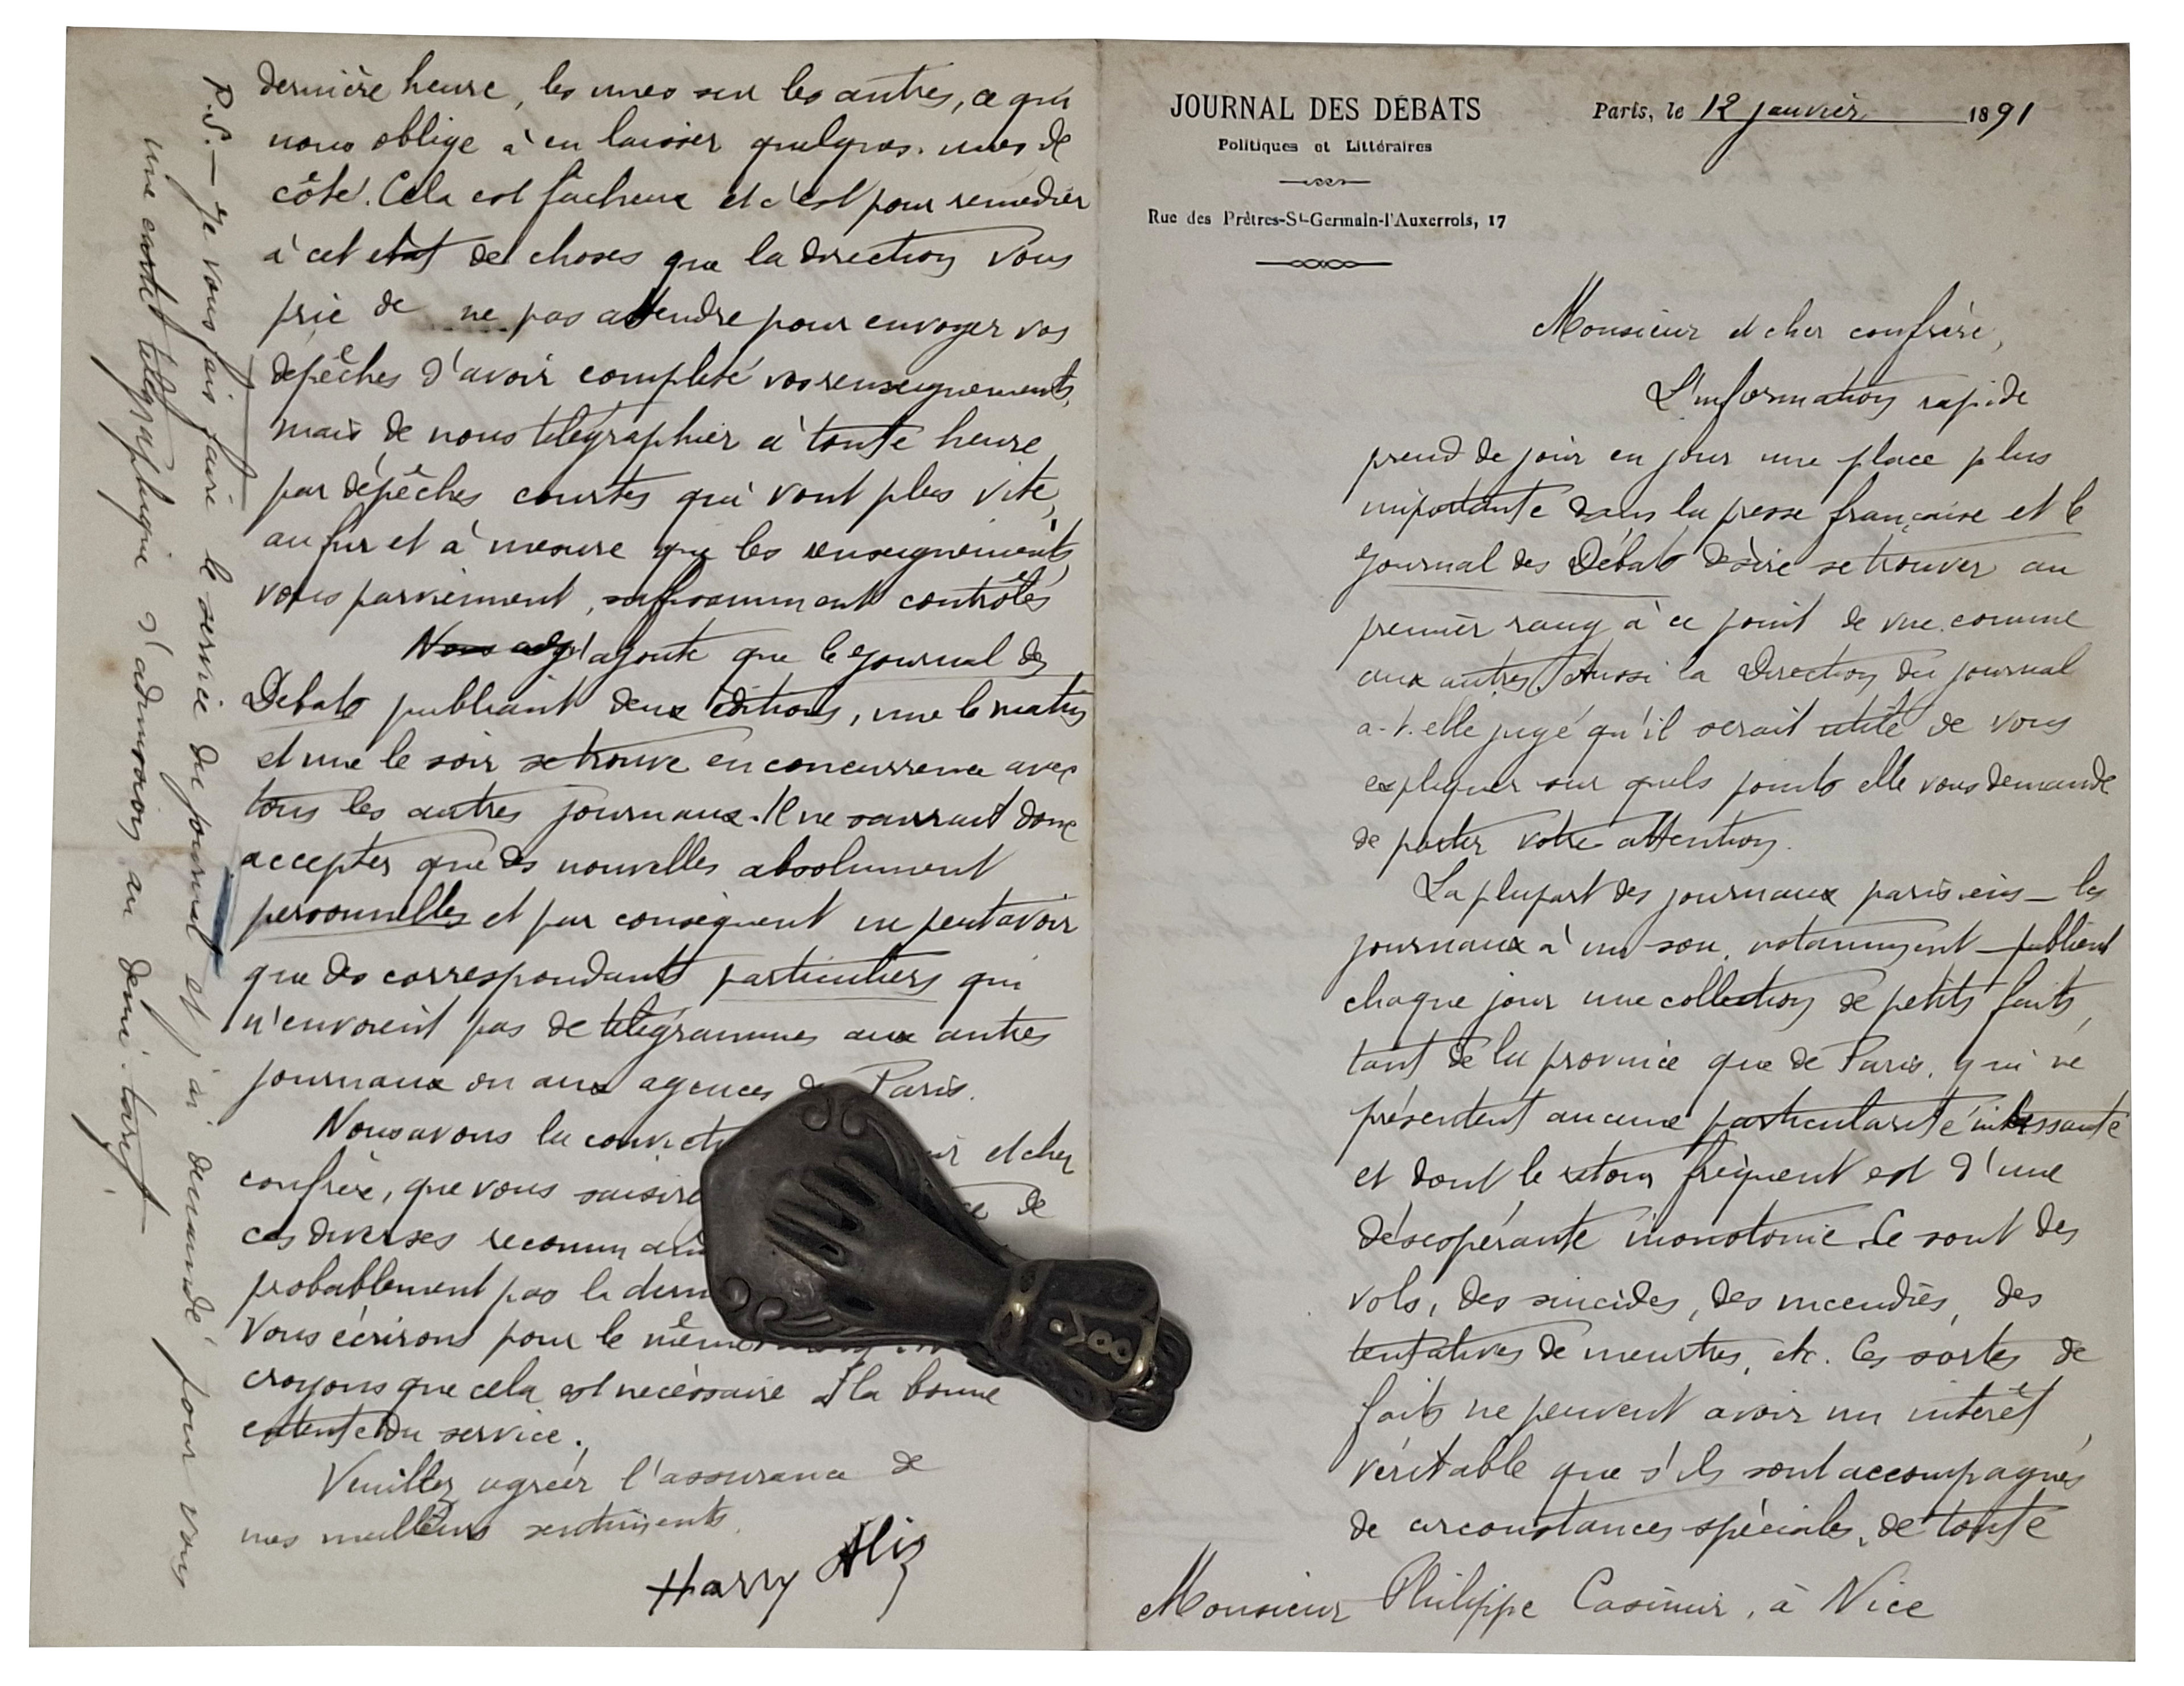 JOURNAL DES DÉBATS
Politiques et Littéraires
Rue des Prêtres-St-Germain-l'Auxerrois, 17
Paris, le 12 janvier 1891
Monsieur et cher confrère,
L'information rapide
prend de jour en jour une place plus
importante dans la presse française et le
Journal des Débats désire se trouver au
premier rang à ce point de vue comme
aux autres. Aussi la Direction du journal
a-t-elle jugé qu'il serait utile de vous
expliquer sur quels points elle vous demande
de porter votre attention.
La plupart des journaux parisiens — les
journaux à un sou, notamment — publient
chaque jour une collection de petits faits,
tant de la province que de Paris, qui ne
présentent aucune particularité intéressante
et dont le retour fréquent est d'une
désespérante monotonie. Ce sont des
vols, des suicides, des incendies, des
tentatives de meurtres, etc. Ces sortes de
faits ne peuvent avoir un intérêt
véritable que s'ils sont accompagnés
de circonstances spéciales, de toute
Monsieur Philippe Casimir, à Nice
dernière heure, les unes sur les autres, ce qui
nous oblige à en laisser quelques-unes de
côté. Cela est fâcheux et c'est pour remédier
à cet état de choses que la direction vous
prie de ne pas attendre pour envoyer vos
dépêches d'avoir complété vos renseignements,
mais de nous télégraphier à toute heure
par dépêches courtes qui vont plus vite,
au fur et à mesure que les renseignements
vous parviennent, suffisamment contrôlés
J'ajoute que le Journal des
Débats publiant deux éditions, une le matin
et une le soir se trouve en concurrence avec
tous les autres journaux. Il ne saurait donc
accepter que des nouvelles absolument
personnelles et par conséquent ne peut avoir
que des correspondants particuliers qui
n'envoient pas de télégrammes aux autres
journaux ou aux agences de Paris.
Nous avons la et cher
confrère, que vous de
ces diverses
probablement pas la
vous écrirons pour le même
croyons que cela est nécessaire à la bonne
entente du service.
Veuillez agréer l'assurance de
mes meilleurs sentiments.
Harry Alis
P.S. — Je vous fais faire le service du journal et j'ai demandé pour vous
une carte télégraphique d'admission au demi-tarif